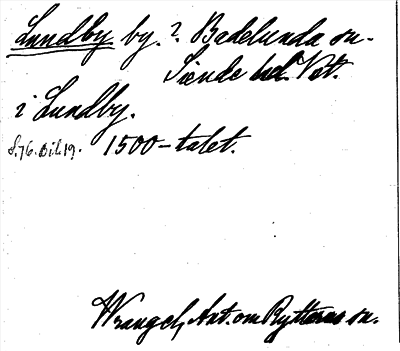 Lundby by. ? Badelunda sn.
Siende hd. Vst.
i Lundby.
S. 76. Bil. 19. 1500-talet.
Wrangel, Ant. om Rytterns sn.